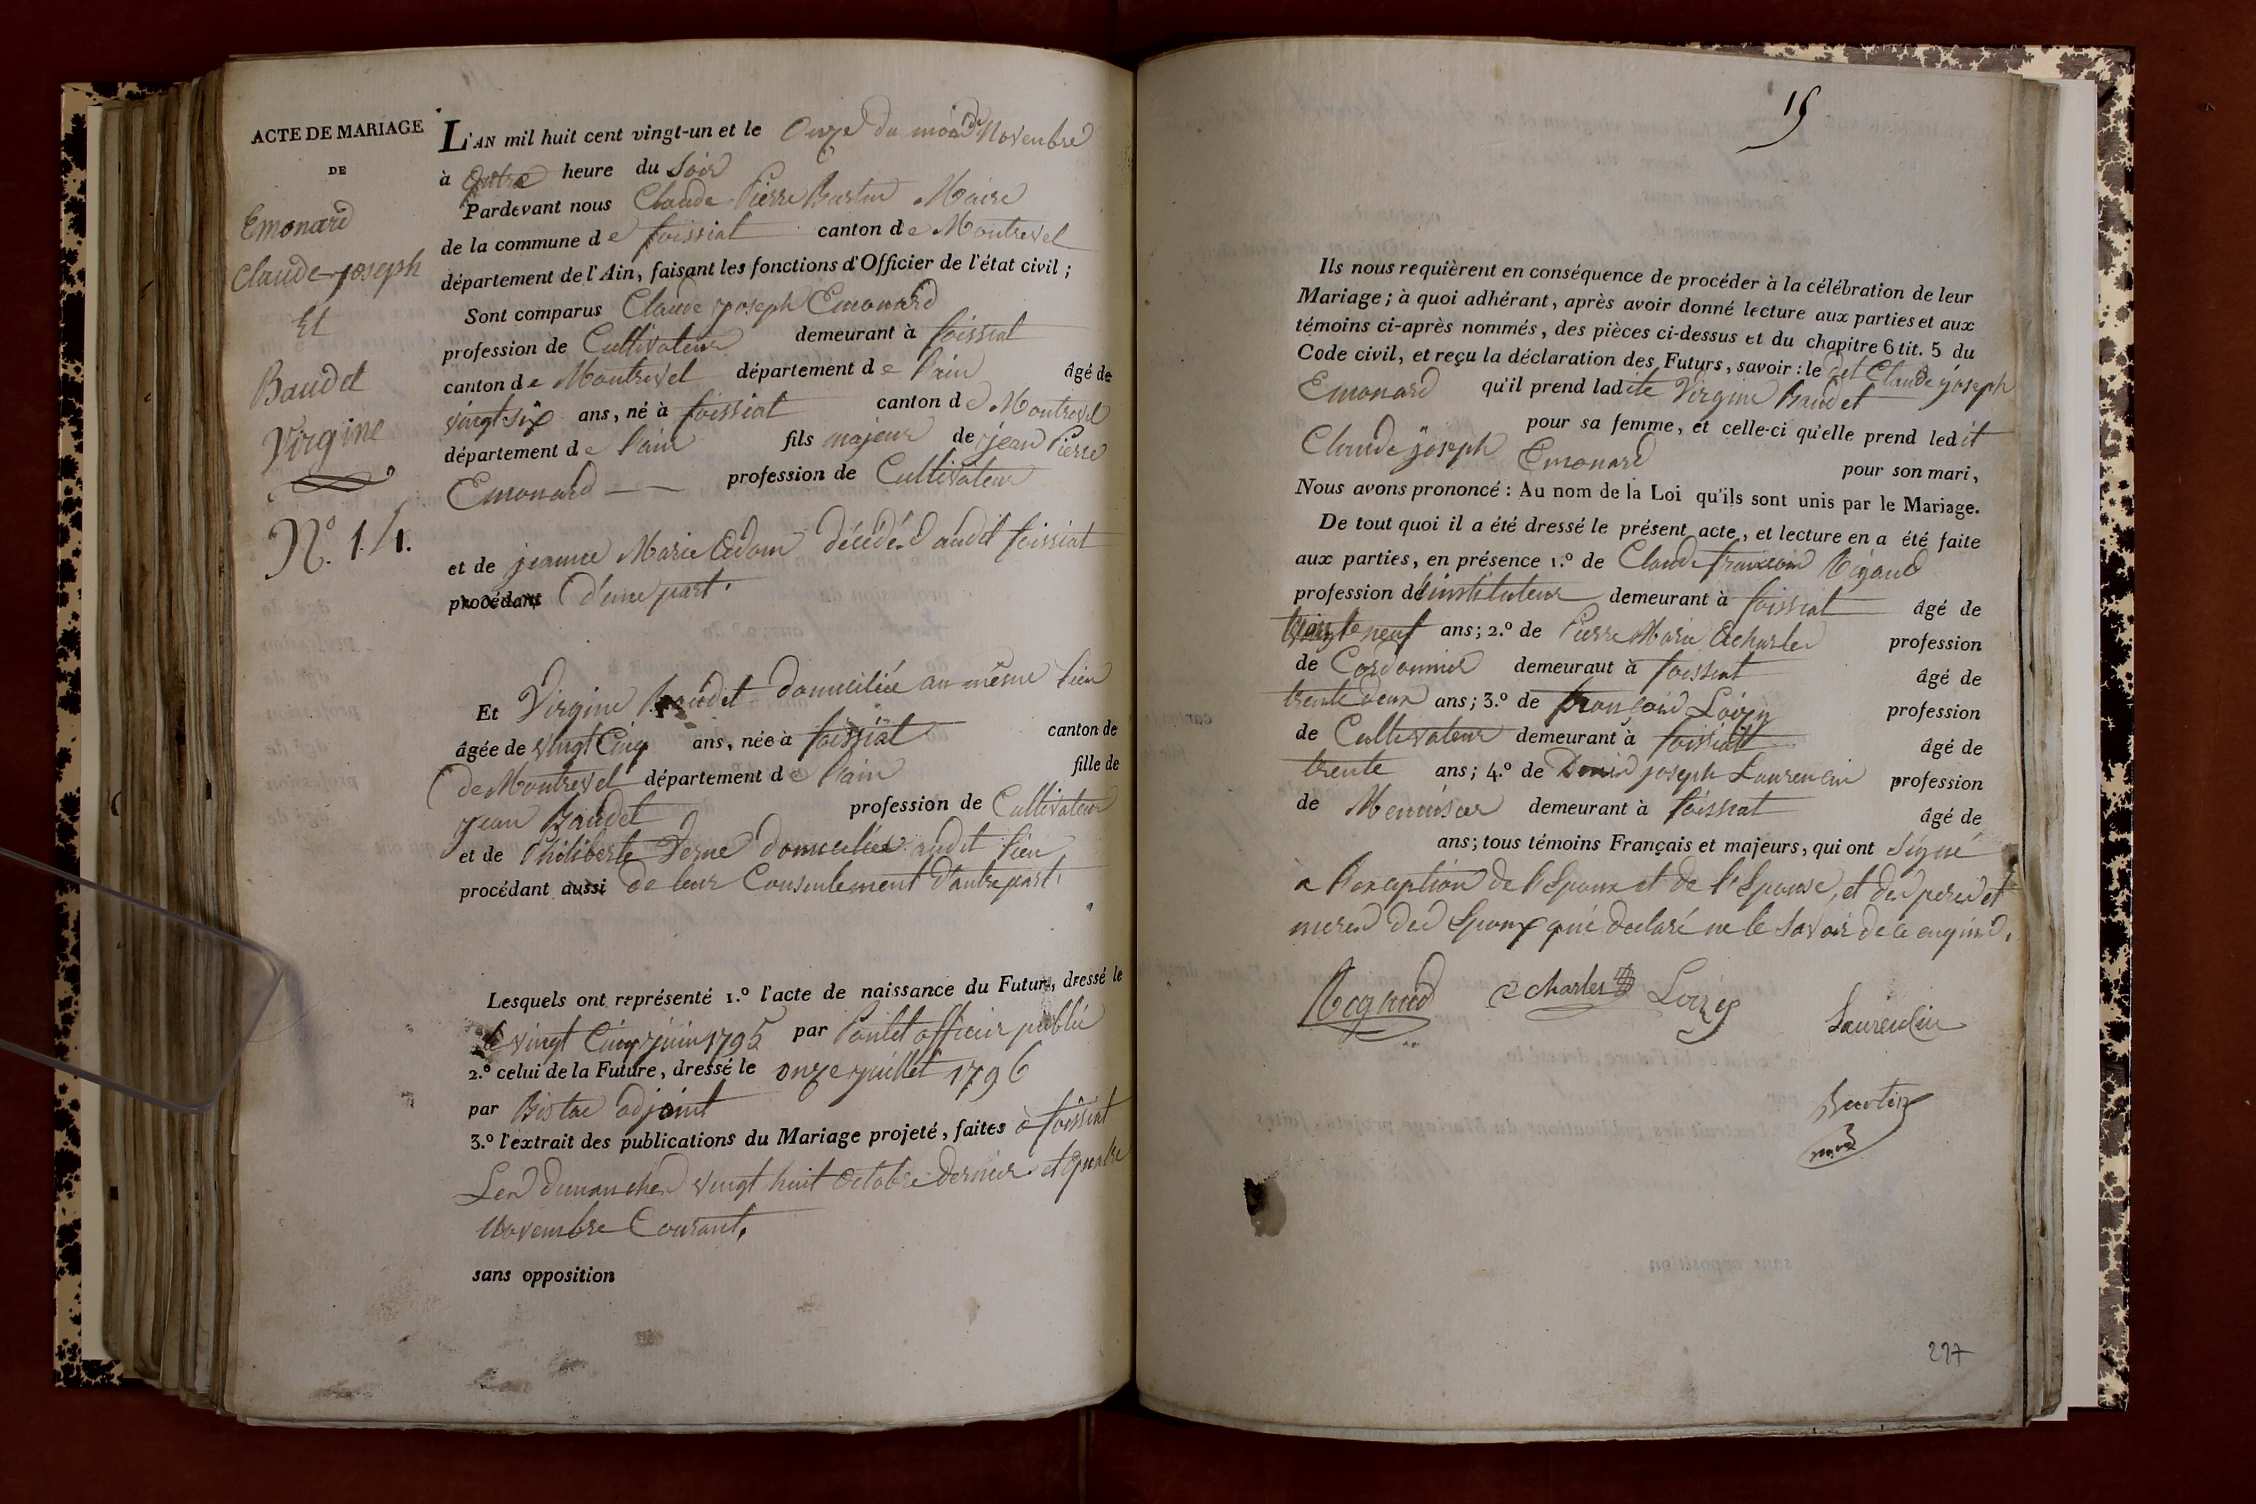 ACTE DE MARIAGE
DE
Emonard
Claude joseph
Et
Baudet
Virgine
N.º 14.
L'AN mil huit cent vingt-un et le Onze du mois de Novembre
à quatre heure du Soir
Pardevant nous Claude Pierre Burtin Maire
de la commune de foissiat canton de Montrevel
département de l'Ain, faisant les fonctions d'Officier de l'état civil ;
Sont comparus Claude joseph Emonard
profession de Cultivateur demeurant à foissiat
canton de Montrevel département de l'ain âgé de
vingt six ans, né à foissiat canton de Montrevel
département de l'ain fils majeur de jean Pierre
Emonard profession de Cultivateur
et de jeanne Marie décédés audit foissiat
procédant D'une part.
Et Virgine Baudet domiciliée au même lieu
âgée de vingt Cinq ans, née à foissiat canton de
de Montrevel département de l'ain fille de
jean Baudet profession de Cultivateur
et de Philiberte domiciliés audit lieu
procédant aussi de leur Consentement D'autre part.
Lesquels ont représenté 1.º l'acte de naissance du Futur, dressé le
le vingt Cinq juin 1795 par officier public
2.º celui de la Future, dressé le onze juillet 1796
par adjoint
3.º l'extrait des publications du Mariage projeté, faites à foissiat
Les dimanches vingt huit octobre dernier et quatre
Novembre Courant.
sans opposition
15
Ils nous requièrent en conséquence de procéder à la célébration de leur
Mariage ; à quoi adhérant, après avoir donné lecture aux parties et aux
témoins ci-après nommés, des pièces ci-dessus et du chapitre 6 tit. 5 du
Code civil, et reçu la déclaration des Futurs, savoir : le dit Claude joseph
Emonard qu'il prend ladite Virgine Baudet
pour sa femme, et celle-ci qu'elle prend ledit
Claude joseph Emonard pour son mari,
Nous avons prononcé : Au nom de la Loi qu'ils sont unis par le Mariage.
De tout quoi il a été dressé le présent acte, et lecture en a été faite
aux parties, en présence 1.º de Claude françois Rigaud
profession de l'instituteur demeurant à foissiat âgé de
neuf ans ; 2.º de Pierre Marie Echarles profession
de Cordonnier demeurant à foissiat âgé de
trente deux ans ; 3.º de françois Loizy profession
de Cultivateur demeurant à foissiat âgé de
trente ans ; 4.º de Denis joseph Laurencin profession
de Menuisier demeurant à foissiat âgé de
ans ; tous témoins Français et majeurs, qui ont signé
a l'exception de l'Epoux et de l'Epouse, et des peres et
meres des Epoux qui declaré ne le savoir de ce enquis.
Rigaud Echarles Loizy
Laurencin
Burtin
maire
297